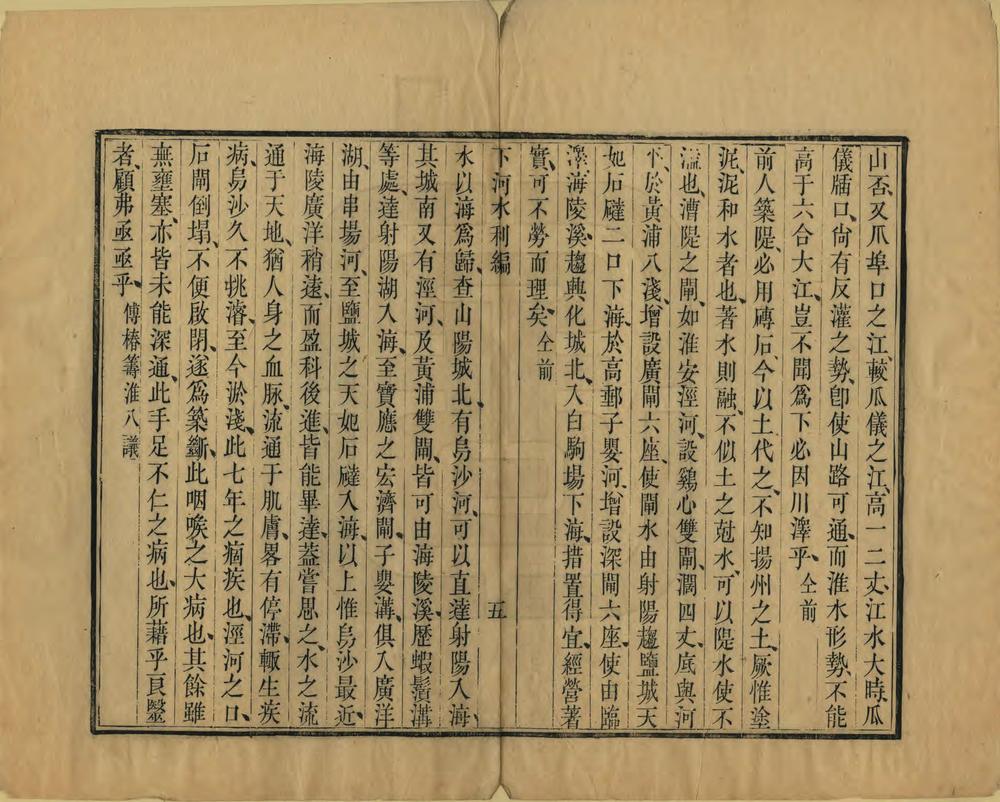 山否、又爪埠口之江、較瓜儀之江、高一二丈、江水大時、瓜
儀牐口、尙有反灌之勢、卽使山路可通、而淮水形勢、不能
高于六合大江、豈不聞爲下必因川澤乎、仝前
前人築隄、必用磚石、今以土代之、不知揚州之土、厥惟塗
泥、泥和水者也、著水則融、不似土之尅水、可以隄水使不
溢也、漕隄之閘、如淮安涇河、設鷄心雙閘、濶四丈、底與河
平、於黃浦八淺、增設廣閘六座、使閘水由射陽趨鹽城天
妃石䃮二口下海、於高郵子嬰河、增設深閘六座、使由臨
澤、海陵溪、趨興化城北、入白駒場下海、措置得宜、經營著
實、可不勞而理矣、仝前
下河水利編 五
水以海爲歸、查山陽城北、有烏沙河、可以直達射陽入海、
其城南又有涇河、及黃浦雙閘、皆可由海陵溪、歷蝦鬚溝
等處、達射陽湖入海、至寶應之宏濟閘、子嬰溝、俱入廣洋
湖、由串場河、至鹽城之天妃石䃮入海、以上惟烏沙最近、
海陵廣洋稍遠、而盈科後進、皆能畢達、蓋嘗思之、水之流
通于天地、猶人身之血脉、流通于肌膚、畧有停滯、輙生疾
病、烏沙久不挑濬、至今淤淺、此七年之痼疾也、涇河之口、
石閘倒塌、不便啟閉、遂爲築斷、此咽喉之大病也、其餘雖
無壅塞、亦皆未能深通、此手足不仁之病也、所藉乎良毉
者、顧弗亟亟乎、傅椿籌淮八議